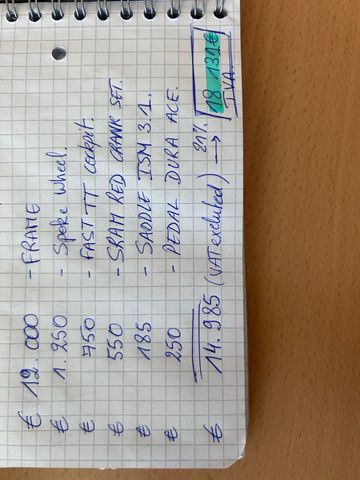 € 12.000 - FRAME
€ 1.250 - Spoke wheel.
€ 750 - FAST TT cockpit.
€ 550 - SRAM RED CRANK SET.
€ 185 - SADDLE ISM 3.1.
€ 250 - PEDAL DURA ACE.
€ 14.985 (VAT excluded) 21% → 18.131€
TVA.